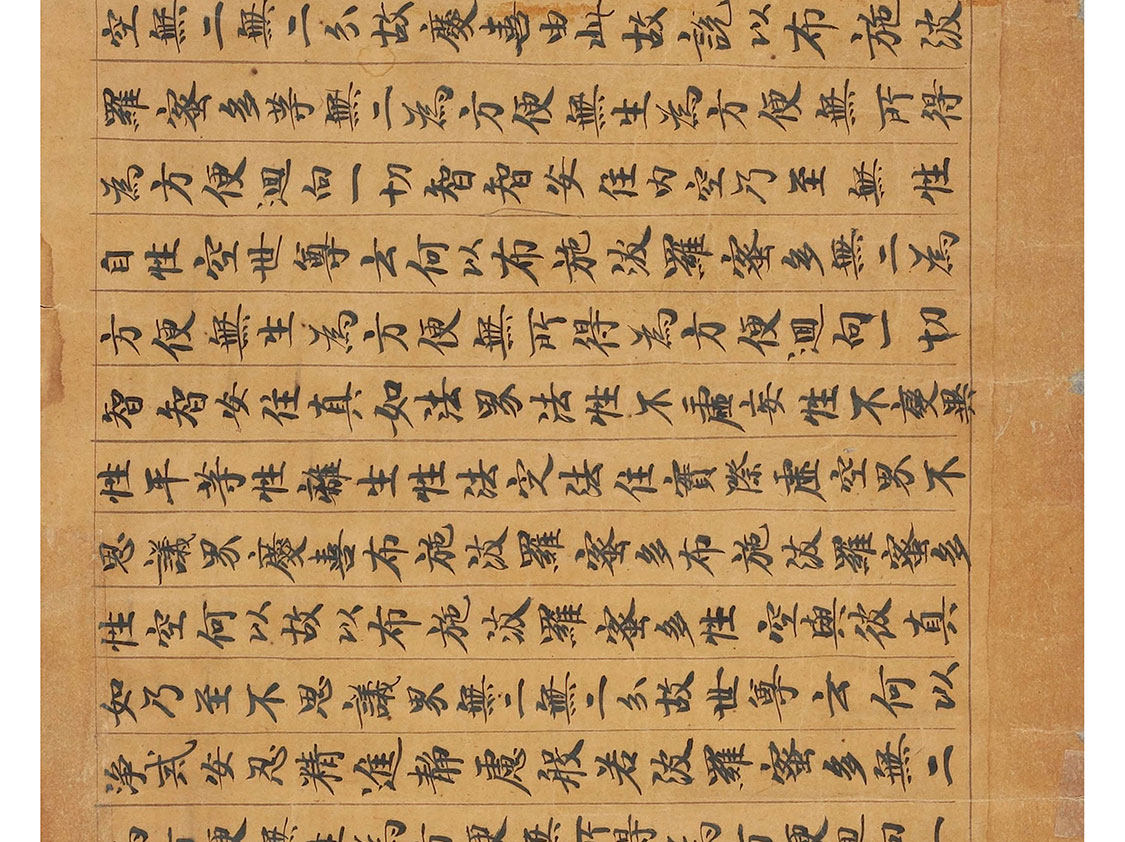 空無二無二分故慶喜由此故說以布施波
羅蜜多等無二為方便無生為方便無所得
為方便迴向一切智智安住内空乃至無性
自性空世尊云何以布施波羅蜜多無二為
方便無生為方便無所得為方便迴向一切
智智安住真如法界法性不虛妄性不變異
性平等性離生性法定法住實際虛空界不
思議界慶喜布施波羅蜜多布施波羅蜜多
性空何以故以布施波羅蜜多性空與彼真
如乃至不思議界無二無二分故世尊云何以
淨戒安忍精進靜慮般若波羅蜜多無二
為方便無生為方便無所得為方便迴向一